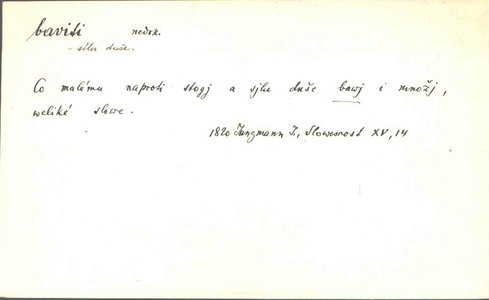 baviti nedok.
- sílu duše.
Co malému naproti stogj a sjlu duše bawj i množj,
weliké slowe.
1820 Jungmann J., Slowesnost XV, 14